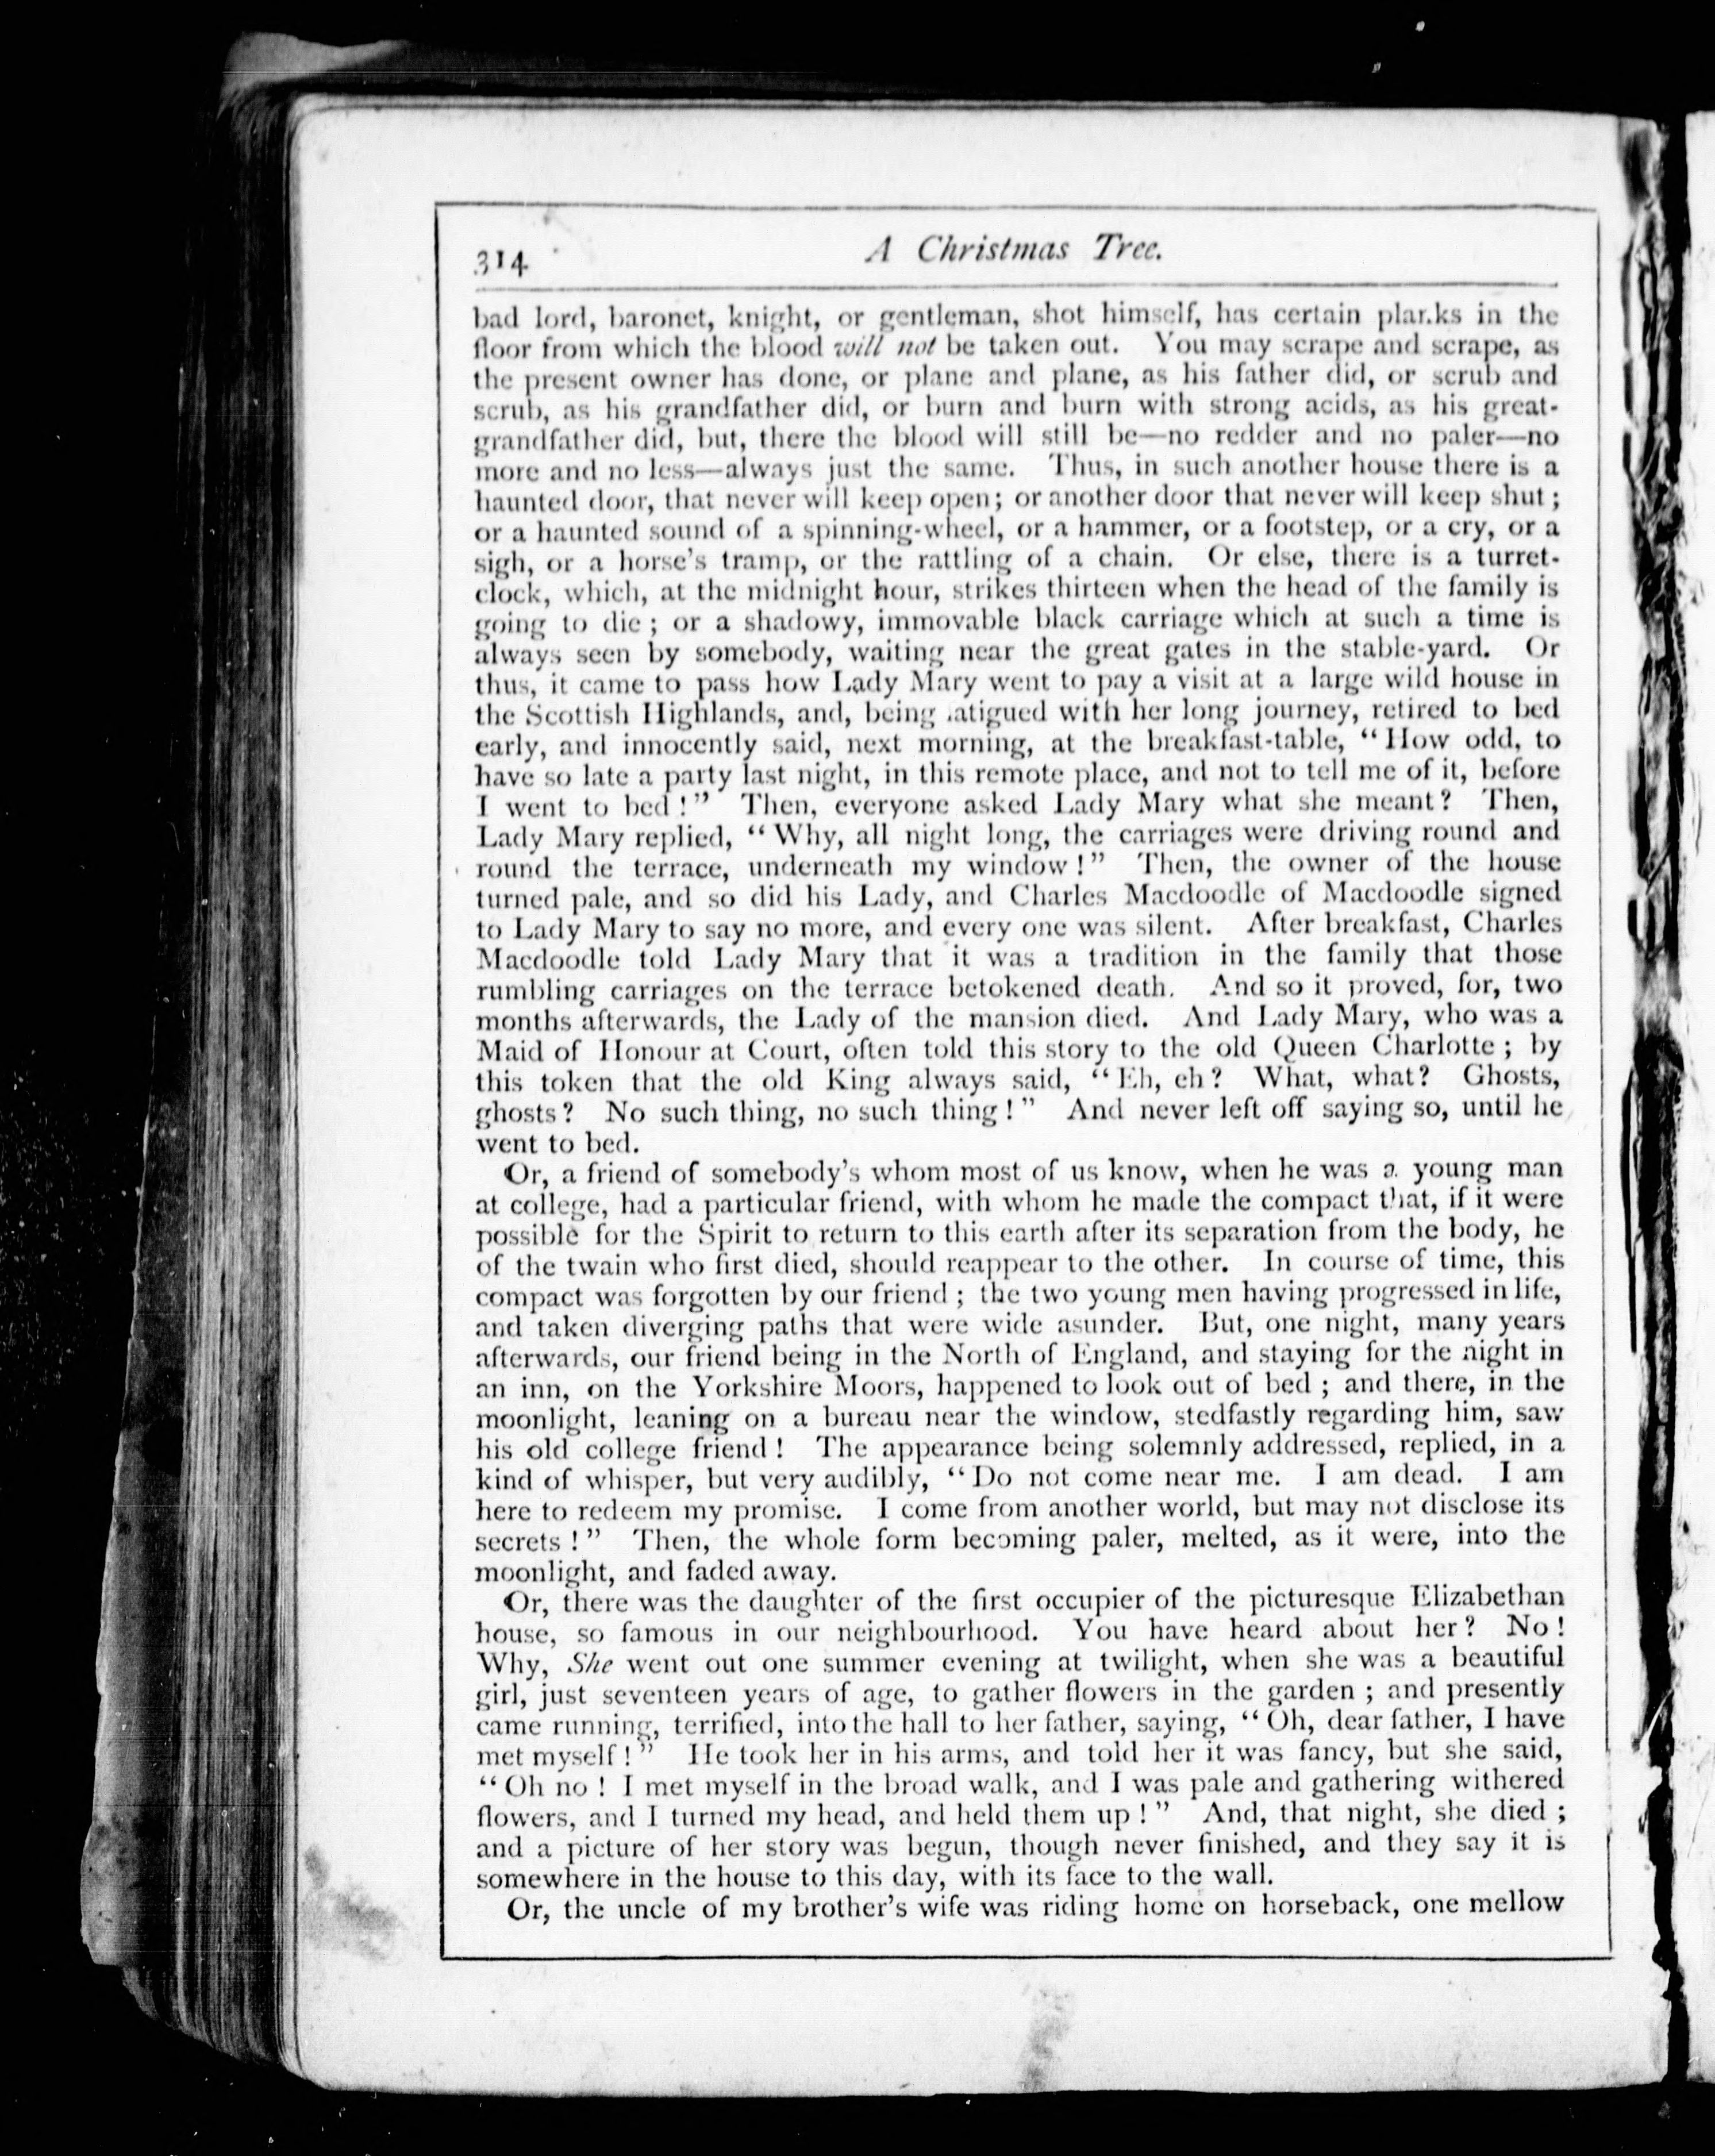 314
A Christmas Tree.
bad lord, baronet, knight, or gentleman, shot himself, has certain planks in the
floor from which the blood will not be taken out. You may scrape and scrape, as
the present owner has done, or plane and plane, as his father did, or scrub and
scrub, as his grandfather did, or burn and burn with strong acids, as his great-
grandfather did, but, there the blood will still be—no redder and no paler—no
more and no less—always just the same. Thus, in such another house there is a
haunted door, that never will keep open; or another door that never will keep shut;
or a haunted sound of a spinning-wheel, or a hammer, or a footstep, or a cry, or a
sigh, or a horse's tramp, or the rattling of a chain. Or else, there is a turret-
clock, which, at the midnight hour, strikes thirteen when the head of the family is
going to die; or a shadowy, immovable black carriage which at such a time is
always seen by somebody, waiting near the great gates in the stable-yard. Or
thus, it came to pass how Lady Mary went to pay a visit at a large wild house in
the Scottish Highlands, and, being fatigued with her long journey, retired to bed
early, and innocently said, next morning, at the breakfast-table, "How odd, to
have so late a party last night, in this remote place, and not to tell me of it, before
I went to bed!" Then, everyone asked Lady Mary what she meant? Then,
Lady Mary replied, "Why, all night long, the carriages were driving round and
round the terrace, underneath my window!" Then, the owner of the house
turned pale, and so did his Lady, and Charles Macdoodle of Macdoodle signed
to Lady Mary to say no more, and every one was silent. After breakfast, Charles
Macdoodle told Lady Mary that it was a tradition in the family that those
rumbling carriages on the terrace betokened death. And so it proved, for, two
months afterwards, the Lady of the mansion died. And Lady Mary, who was a
Maid of Honour at Court, often told this story to the old Queen Charlotte; by
this token that the old King always said, "Eh, eh? What, what? Ghosts,
ghosts? No such thing, no such thing!" And never left off saying so, until he
went to bed.
Or, a friend of somebody's whom most of us know, when he was a young man
at college, had a particular friend, with whom he made the compact that, if it were
possible for the Spirit to return to this earth after its separation from the body, he
of the twain who first died, should reappear to the other. In course of time, this
compact was forgotten by our friend; the two young men having progressed in life,
and taken diverging paths that were wide asunder. But, one night, many years
afterwards, our friend being in the North of England, and staying for the night in
an inn, on the Yorkshire Moors, happened to look out of bed; and there, in the
moonlight, leaning on a bureau near the window, stedfastly regarding him, saw
his old college friend! The appearance being solemnly addressed, replied, in a
kind of whisper, but very audibly, "Do not come near me. I am dead. I am
here to redeem my promise. I come from another world, but may not disclose its
secrets!" Then, the whole form becoming paler, melted, as it were, into the
moonlight, and faded away.
Or, there was the daughter of the first occupier of the picturesque Elizabethan
house, so famous in our neighbourhood. You have heard about her? No!
Why, She went out one summer evening at twilight, when she was a beautiful
girl, just seventeen years of age, to gather flowers in the garden; and presently
came running, terrified, into the hall to her father, saying, "Oh, dear father, I have
met myself!" He took her in his arms, and told her it was fancy, but she said,
"Oh no! I met myself in the broad walk, and I was pale and gathering withered
flowers, and I turned my head, and held them up!" And, that night, she died;
and a picture of her story was begun, though never finished, and they say it is
somewhere in the house to this day, with its face to the wall.
Or, the uncle of my brother's wife was riding home on horseback, one mellow